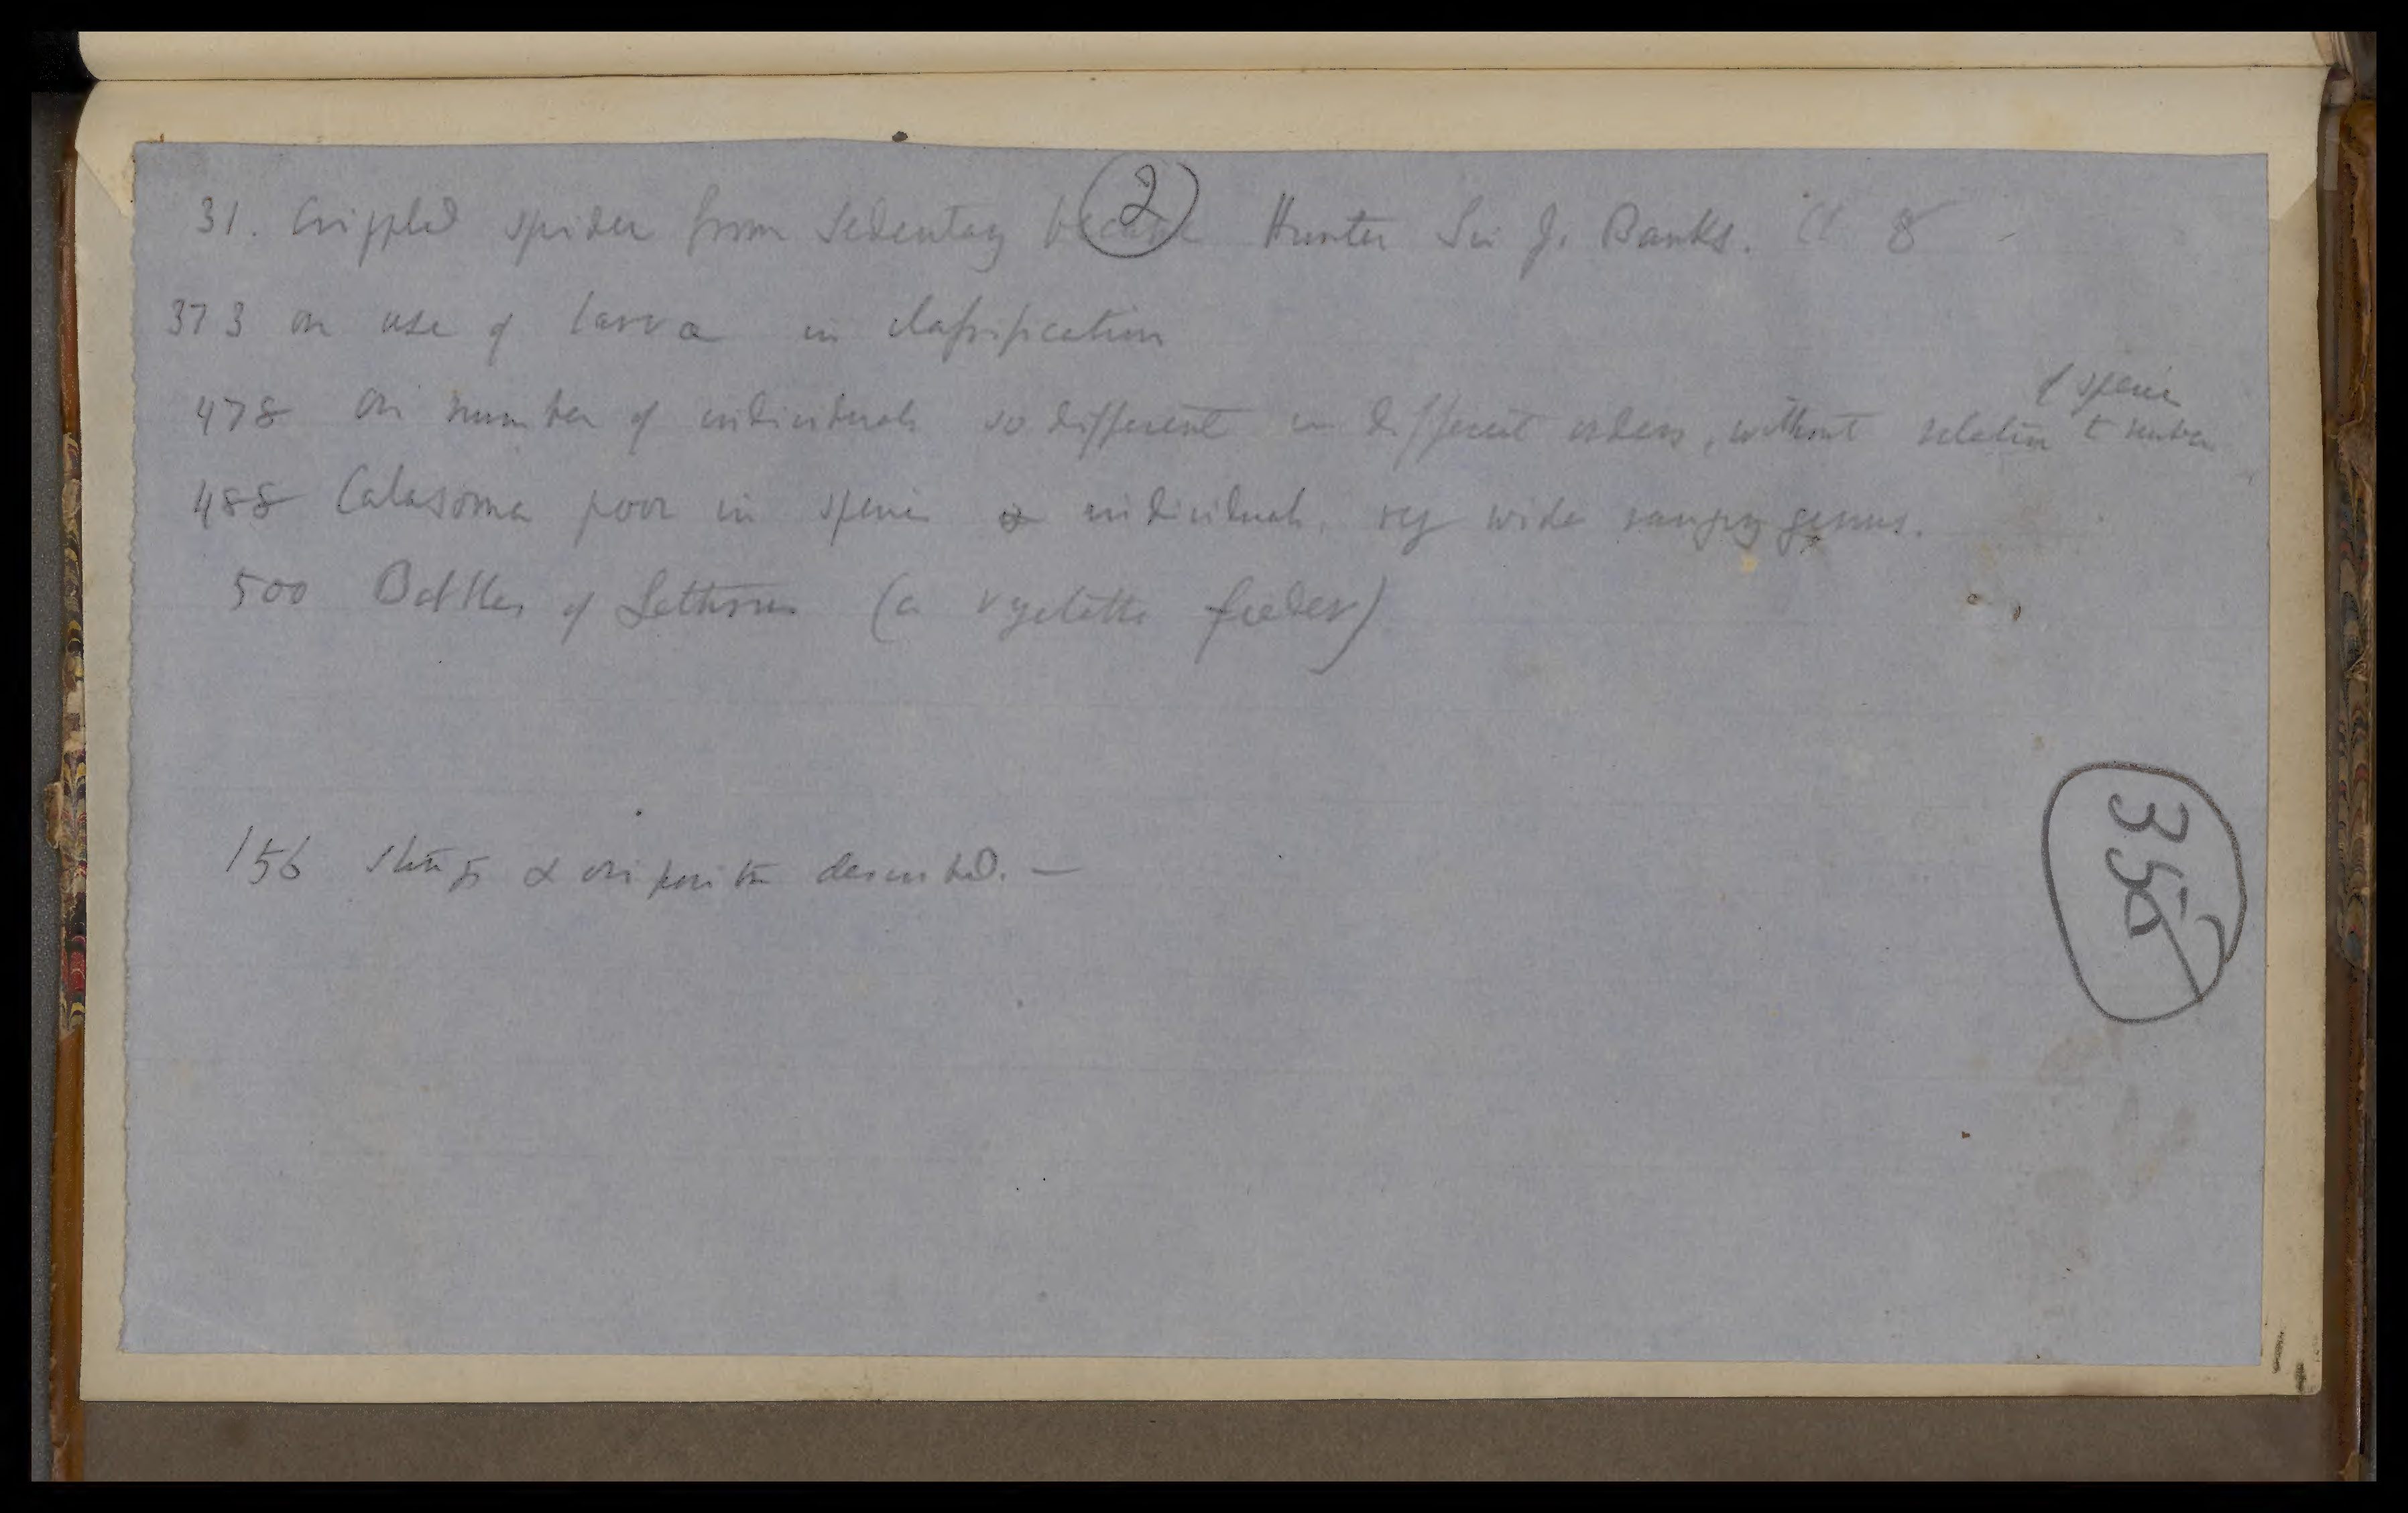 2
31. Crippled spider from Sedentary became Hunter Sir J. Banks. Ch 8 -
373 on use of larva in classification
of species
478 On number of individuals so different in different orders, without relation to number
488 Calasoma poor in species & individuals, very wide ranging genus.
500 Battles of Lethrus (a vegetable feeder)
156 Stings & ovipositor described. —
355